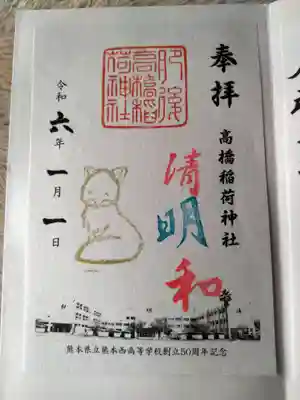 奉拝
高橋稲荷神社
清明和
肥後
高橋稲
荷神社
令和六年一月一日
熊本県立熊本西高等学校創立50周年記念